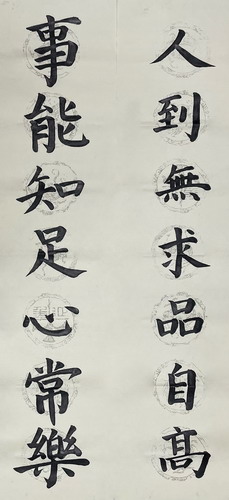 人到無求品自高
事能知足心常樂